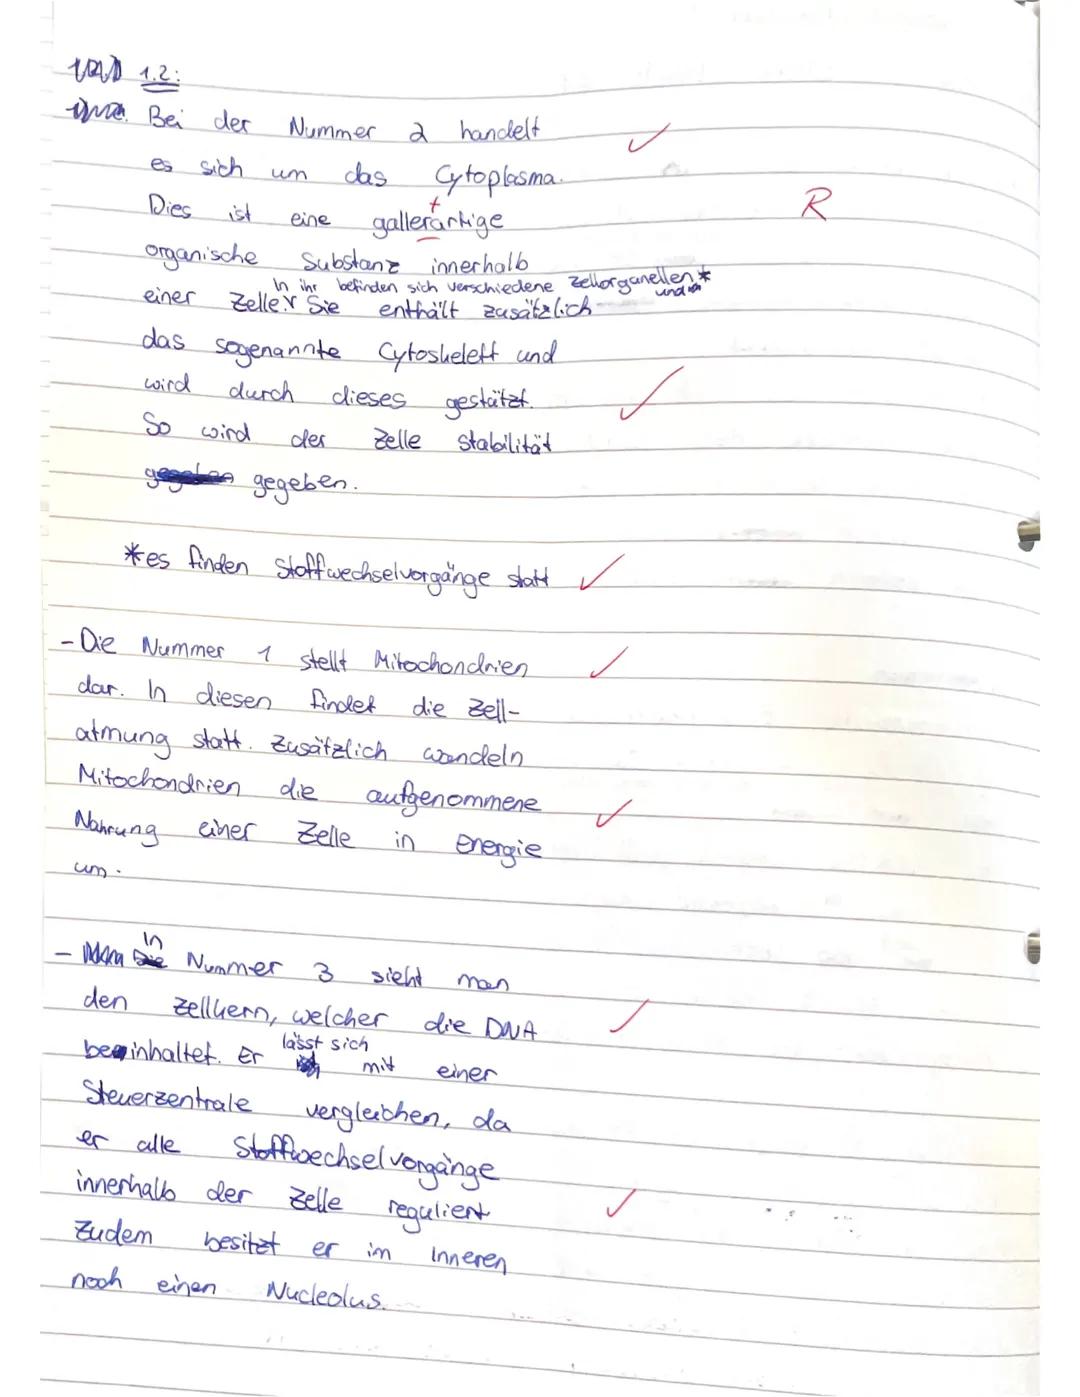 1.2:
Bei der Nummer 2 handelt
es sich um das Cytoplasma.
Dies ist eine gallerartige
t
R
organische Substanz innerhalb
In ihr befinden sich verschiedene Zellorganellen *
und
einer Zelle. Sie enthält zusätzlich
das sogenannte Cytoskelett und
wird durch dieses gestützt.
So wird der Zelle Stabilität
gegeben.
*es finden Stoffwechselvorgänge statt
- Die Nummer 1 stellt Mitochondrien
dar. In diesen findet die Zell-
atmung statt. Zusätzlich wandeln
Mitochondrien die aufgenommene
Nahrung einer Zelle in Energie
um.
- In Nummer 3 sieht man
den Zellkern, welcher die DNA
beinhaltet. Er lässt sich mit einer
Steuerzentrale vergleichen, da
er alle Stoffwechselvorgänge
innerhalb der Zelle reguliert
Zudem besitzt er im Inneren
noch einen Nucleolus.